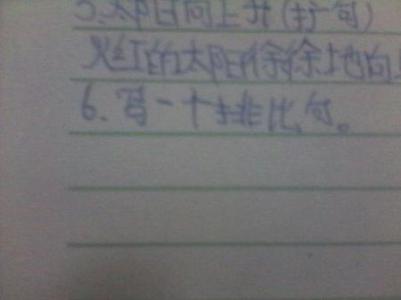 5、太阳向上升(扩句)
火红的太阳徐徐地向
6、写一个排比句。